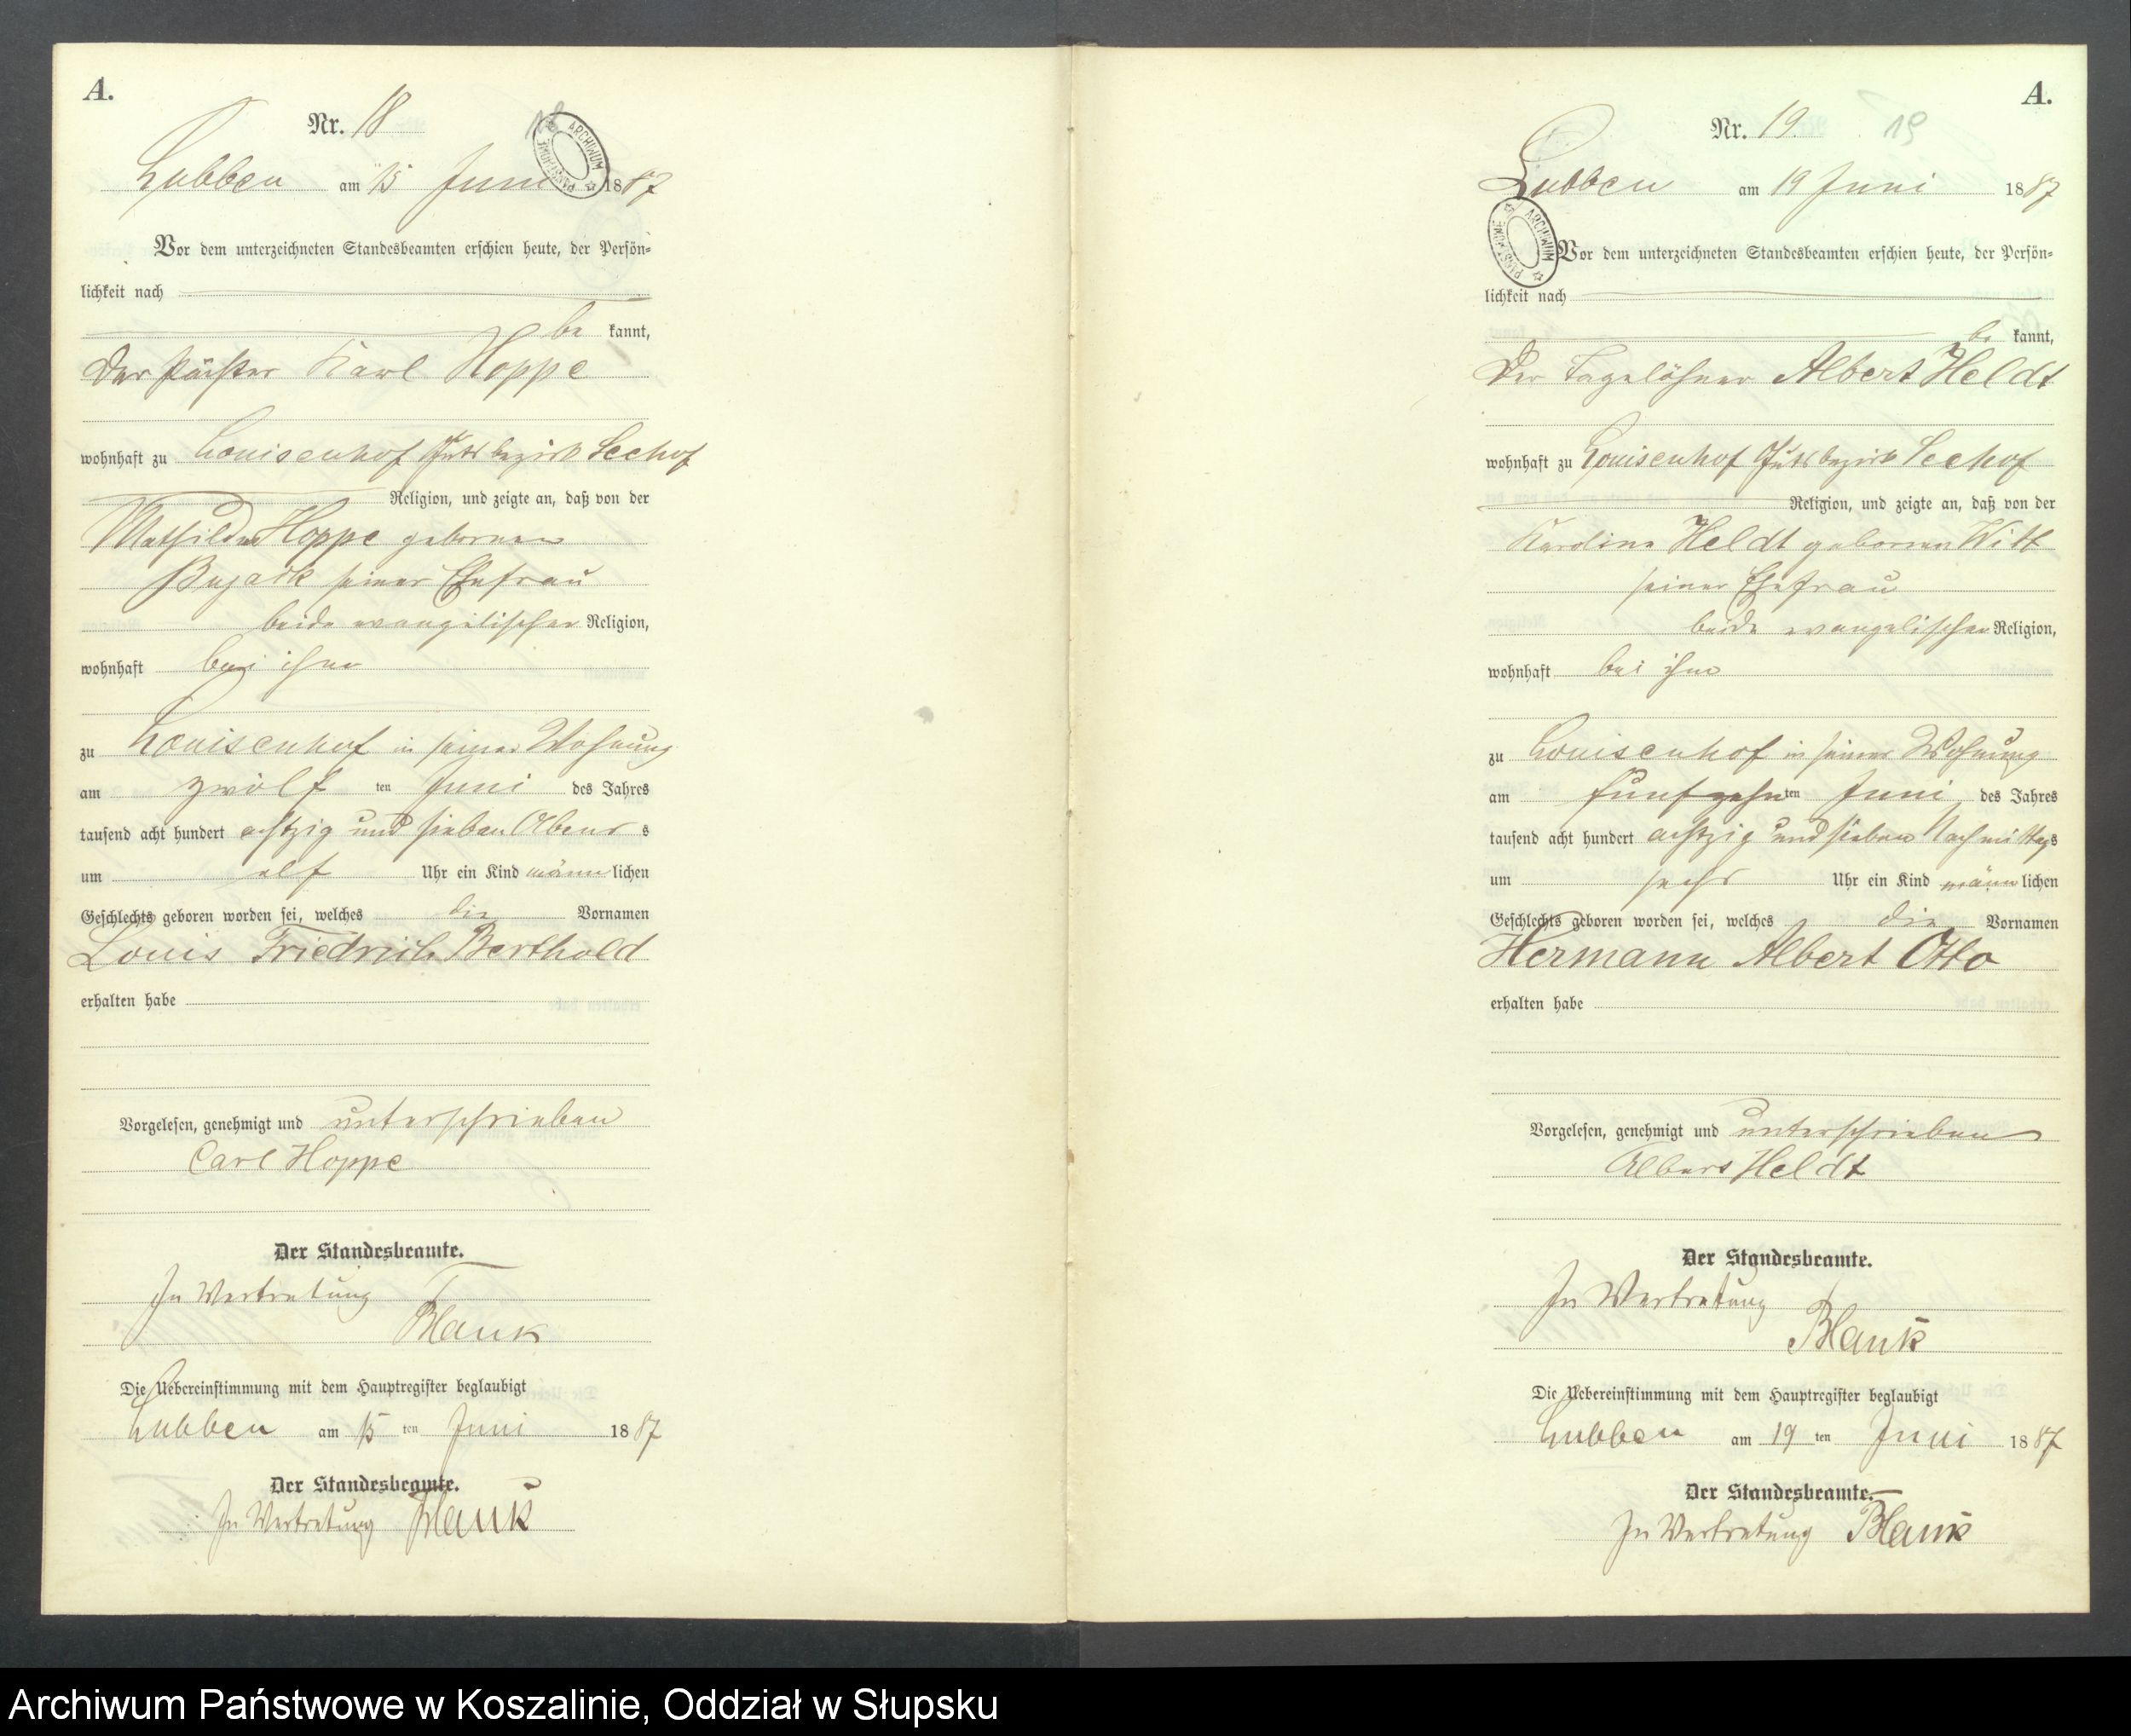 A.
Nr. 18
18
ARCHIWUM PAŃSTWOWE
Lubben am 15 Juni 1887
Vor dem unterzeichneten Standesbeamten erschien heute, der Persön-
lichkeit nach
be kannt,
Der Pächter Karl Hoppe
wohnhaft zu Louisenhof Gutsbezirk Seehof
Religion, und zeigte an, daß von der
Mathilde Hoppe geborenen
seiner Ehefrau
beide evangelischer Religion,
wohnhaft bei ihm
zu Louisenhof in seiner Wohnung
am zwölf ten Juni des Jahres
tausend acht hundert achtzig und sieben Abend s
um elf Uhr ein Kind männ lichen
Geschlechts geboren worden sei, welches die Vornamen
Louis Friedrich Berthold
erhalten habe
Vorgelesen, genehmigt und unterschrieben
Carl Hoppe
Der Standesbeamte.
In Vertretung
Blank
Die Uebereinstimmung mit dem Hauptregister beglaubigt
Lubben am 15 ten Juni 1887
Der Standesbeamte.
In Vertretung Blank
A.
Nr. 19.
19
Lubben am 19 Juni 1887
ARCHIWUM PAŃSTWOWE
Vor dem unterzeichneten Standesbeamten erschien heute, der Persön-
lichkeit nach
be kannt,
Der Tagelöhner Albert Heldt
wohnhaft zu Louisenhof Gutsbezirk Seehof
Religion, und zeigte an, daß von der
Karoline Heldt geborenen Witt
seiner Ehefrau
beide evangelischer Religion,
wohnhaft bei ihm
zu Louisenhof in seiner Wohnung
am fünfzehn ten Juni des Jahres
tausend acht hundert achtzig und sieben Nachmittags
um sechs Uhr ein Kind männ lichen
Geschlechts geboren worden sei, welches die Vornamen
Hermann Albert Otto
erhalten habe
Vorgelesen, genehmigt und unterschrieben
Albert Heldt
Der Standesbeamte.
In Vertretung
Blank
Die Uebereinstimmung mit dem Hauptregister beglaubigt
Lubben am 19 ten Juni 1887
Der Standesbeamte.
In Vertretung Blank
Archiwum Państwowe w Koszalinie, Oddział w Słupsku